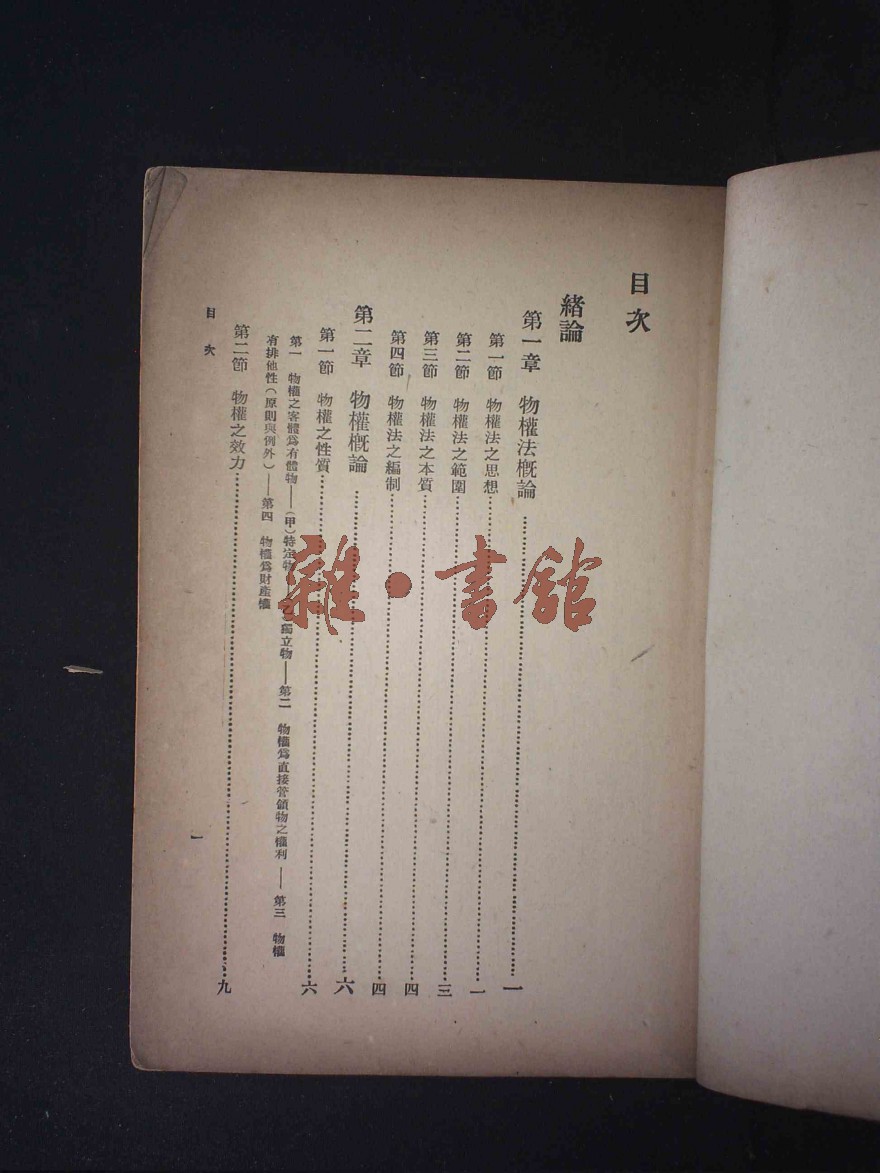 目次
緒論
第一章 物權法概論……一
第一節 物權法之思想……一
第二節 物權法之範圍……三
第三節 物權法之本質……四
第四節 物權法之編制……四
第二章 物權概論……六
第一節 物權之性質……六
第一 物權之客體爲有體物——(甲)特定物 獨立物——第二 物權爲直接管領物之權利——第三 物權
有排他性(原則與例外)——第四 物權爲財產權
第二節 物權之效力……九
目次
一
雜·書館